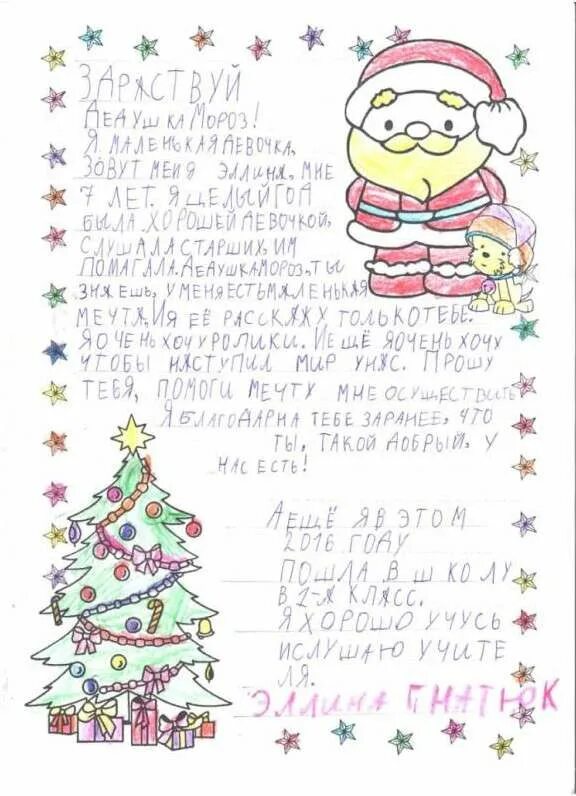 ЗДРАСТВУЙ
ДЕДУШКА МОРОЗ!
Я. МАЛЕНЬКАЯ ДЕВОЧКА,
ЗОВУТ МЕНЯ ЭЛЛИНА, МНЕ
7 ЛЕТ. Я ЦЕЛЫЙ ГОД
БЫЛА ХОРОШЕЙ ДЕВОЧКОЙ,
СЛУШАЛА СТАРШИХ, ИМ
ПОМАГАЛА. ДЕДУШКА МОРОЗ, ТЫ
ЗНАЕШЬ, У МЕНЯ ЕСТЬ МАЛЕНЬКАЯ
МЕЧТА, И Я ЕЁ РАССКАЖУ ТОЛЬКО ТЕБЕ.
Я ОЧЕНЬ ХОЧУ РОЛИКИ. И ЕЩЁ Я ОЧЕНЬ ХОЧУ
ЧТОБЫ НАСТУПИЛ МИР У НАС. ПРОШУ
ТЕБЯ, ПОМОГИ МЕЧТУ МНЕ ОСУЩЕСТВИТЬ
Я БЛАГОДАРНА ТЕБЕ ЗАРАНЕЕ, ЧТО
ТЫ, ТАКОЙ ДОБРЫЙ, У
НАС ЕСТЬ!
А ЕЩЁ Я В ЭТОМ
2016 ГОДУ
ПОШЛА В ШКОЛУ
В 1-Й КЛАСС.
Я ХОРОШО УЧУСЬ
И СЛУШАЮ УЧИТЕ
ЛЯ.
ЭЛЛИНА ГНАТЮК